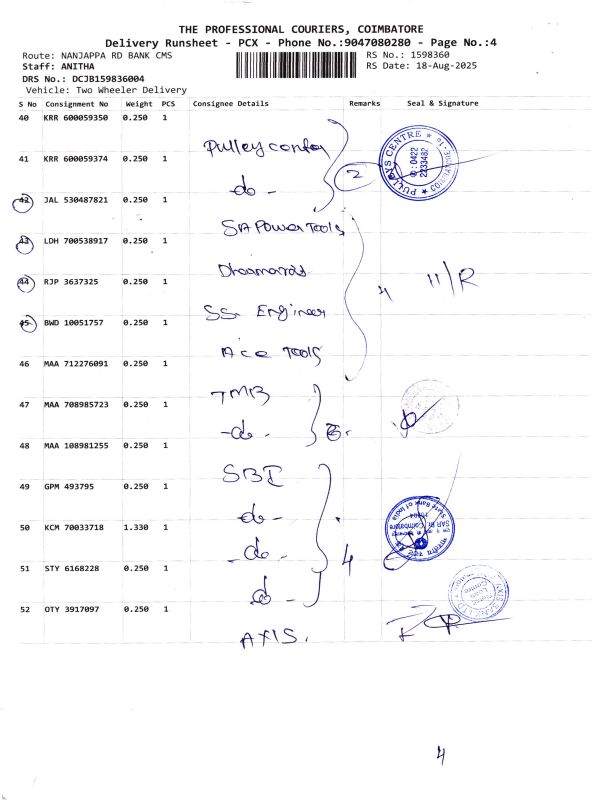 THE PROFESSIONAL COURIERS, COIMBATORE
Delivery Runsheet - PCX - Phone No.:9047080280 - Page No.:4
Route: NANJAPPA RD BANK CMS
RS No.: 1598360
Staff: ANITHA
RS Date: 18-Aug-2025
DRS No.: DCJB159836004
Vehicle: Two Wheeler Delivery
S No Consignment No Weight PCS Consignee Details Remarks Seal & Signature
40 KRR 600059350 0.250 1
Pulley
2
PULLEYS CENTRE
0422
2233482
41 KRR 600059374 0.250 1
-do-
42 JAL 530487821 0.250 1
SA Power Tools
43 LDH 700538917 0.250 1
4
11/R
44 RJP 3637325 0.250 1
SS Engineer
45 BWD 10051757 0.250 1
Ace Tools
46 MAA 712276091 0.250 1
TMB
47 MAA 708985723 0.250 1
-do-
48 MAA 108981255 0.250 1
SBI
49 GPM 493795 0.250 1
-do-
State Bank of India
50 KCM 70033718 1.330 1
-do-
4
51 STY 6168228 0.250 1
do-
52 OTY 3917097 0.250 1
AXIS.
4